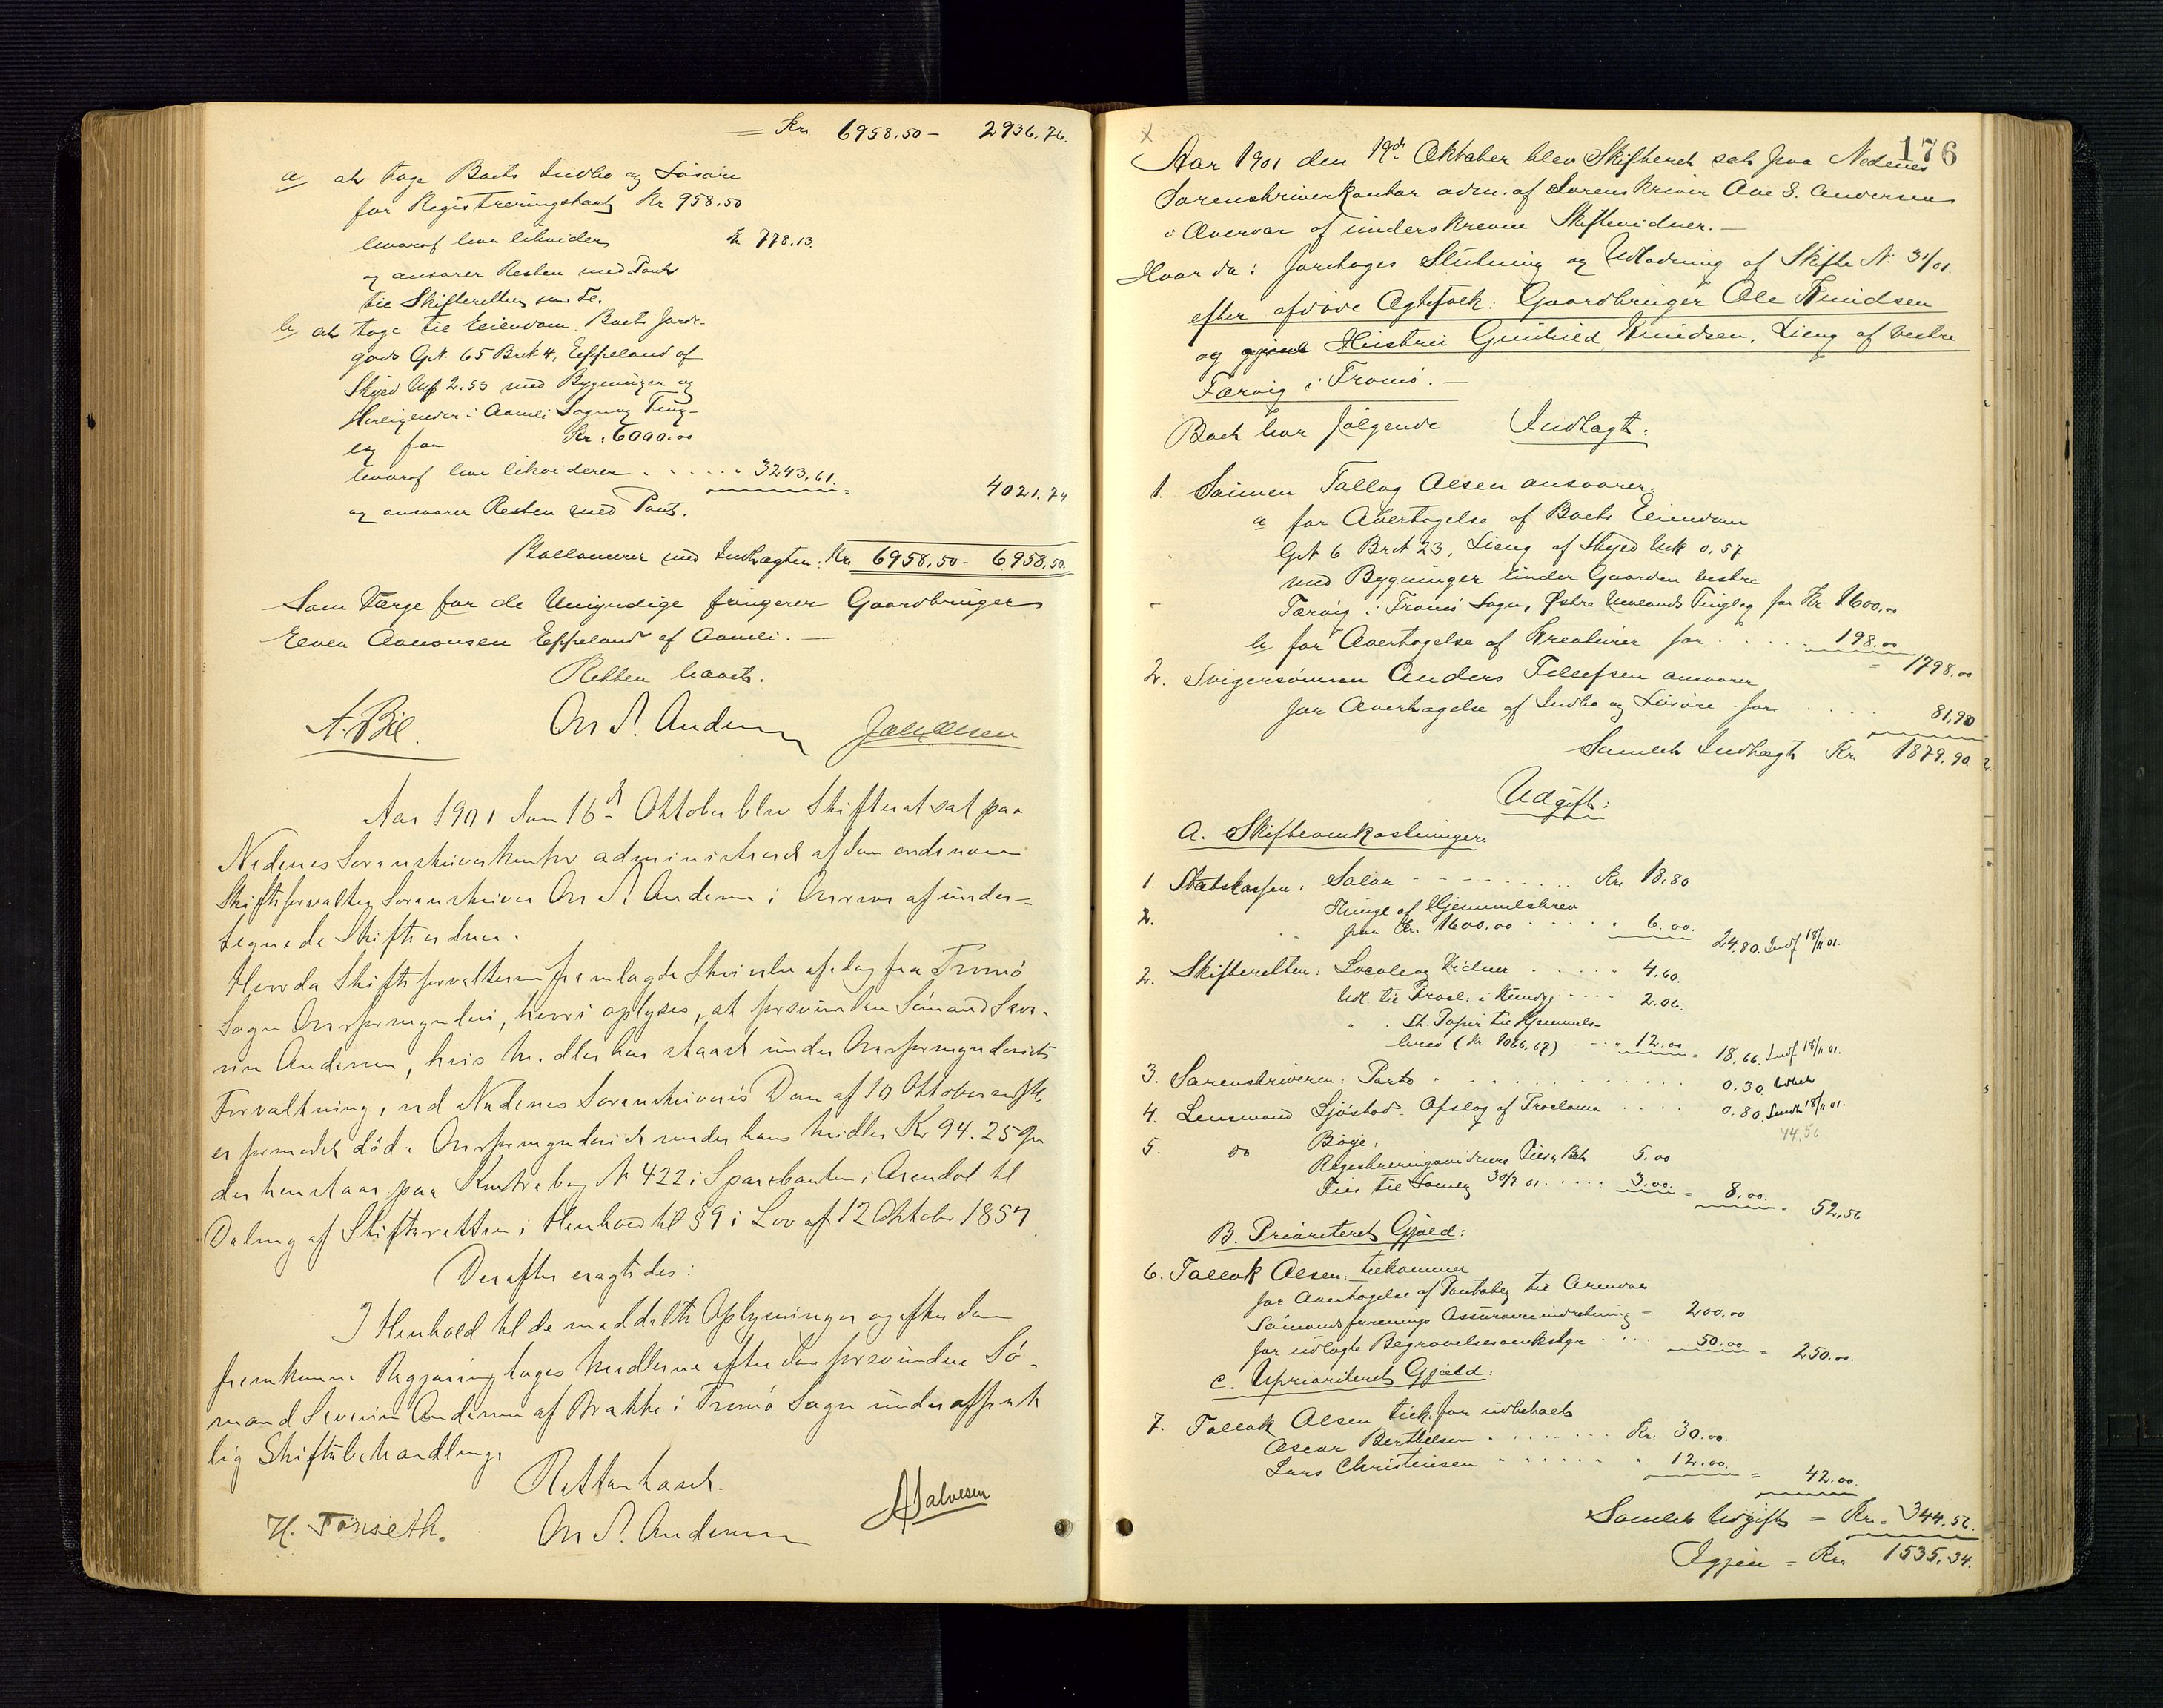 = Kr. 6958.50 - 2936.76.
a at tage Boets Indbo og Lösöre
for Registreringstaxt Kr 958.50
hvoraf han likviderer Kr. 778.13.
og ansvarer Resten med Pant
til Skifteretten som Fl.
b at tage til Eiendom Boets Jorde-
gods Gn. 65 Brt 4, Eppeland af
Skyld Mk 2.53 med Bygninger og
Herligheder i Aamli Sogn og Ting-
lag for Kr: 6000.00
hvoraf han likviderer . . . . . " 3243.61. = 4021.74
og ansvarer Resten med Pant.
Ballancerer med Indtægten: Kr. 6958,50 - 6958.50.
Som Værge for de Umyndige fungerer Gaardbruger
Even Aanonsen Eppeland af Aamli. —
Retten hævet.
A. Bie. On S. Andersen Joh Olsen
Aar 1901 den 16de Oktober blev Skifteret sat paa
Nedenes Sorenskriverkontor administreret af den ordinære
Skifteforvalter Sorenskriver On S. Andersen i Overvær af under-
tegnede Skiftevidner.
Hvorda Skifteforvalteren fremlagde Skrivelse af idag fra Tromö
Sogns Overformynderi, hvori oplyses, at forsvunden Sömand Seve-
rin Andersen, hvis Midler har staaet under Overformynderiets
Forvaltning, ved Nedenes Sorenskriveris Dom af 10 Oktober sidstl.
er formodet död. Overformynderiet under hans Midler Kr 94.25 Øre
der henstaar paa Kontrabog N 422 i Sparebanken i Arendal til
Deling af Skifteretten i Henhold til § 9 i Lov af 12 Oktober 1857
Derefter eragtedes:
I Henhold til de meddelte Oplysninger og efter den
fremkomne Begjæring tages Midlerne efter den forsvundne Sö-
mand Severin Andersen af Brække i Tromö Sogn under offent-
lig Skiftebehandling.
Retten hævet.
H. Torseth. On S. Andersen A Salvesen
176
Aar 1901 den 19de Oktober blev Skifteret sat paa Nedenes
Sorenskriverkontor adm. af Sorenskriver One S. Andersen
i Overvær af underskrevne Skiftevidner. —
Hvorda: foretages Slutning og Udlodning af Skifte N. 31/01.
efter afdöde Ægtefolk: Gaardbruger Ole Knudsen
og Hustru Gunhild Knudsen, Lieng af vestre
Færvig i Tromö. —
Boet har fölgende Indtægt:
1. Sönnen Tallag Olsen ansvarer.
a for Overtagelse af Boets Eiendom
Gn. 6 Brt 23, Lieng af Skyld Mk 0,57
med Bygninger under Gaarden vestre
Færvig i Tromö Sogn, Østre Molands Tinglag for Kr 1600.00
b for Overtagelse af Kreaturer for . . . . . 198.00 = 1798.00
2. Svigersönnen Anders Tellefsen ansvarer
for Overtagelse af Indbo og Lösöre for . . . . 81,90
Samlet Indtægt Kr. 1879.90.
Udgift:
A. Skifteomkostninger.
1. Statskassen: Salær - - - - - - - Kr. 18,80
2. Thingl. af Hjemmelsbrev
for Kr. 1600.00 . . . . . " 6.00. 24.80. Indf 18/11 01.
2. Skifteretten: Locale og Vidner . . . . . " 4.60.
Udl. til Procl. i Kundg. . . . . 2.06.
" " St. Papir til Hjemmels-
brev (Kr 1066,67) . . . " 12.00 = 18.66. Indf 18/11 01.
3. Sorenskriveren: Porto . . . . . . . . . . 0.30
4. Lensmand Sjöstad. Opslag af Proclama . . . . 0.80. Sendt 18/11 01.
44,56
5. do Böije:
Registreringsvidners 5.00
til Samling 30/7 01 . . . . . 3.00 = 8,00. = 52,56
B. Prioriteret Gjæld:
6. Tallak Olsen: tilkommer
for Overtagelse af Pantobl. til Arendal
Sömandsforenings Assuranceindretning = 200.00
for udlagte Begravelsesomkstgr . . . . 50.00 = 250.00.
C. Uprioriteret Gjæld:
7. Tallak Olsen tilk. for udbetalt
Oscar Berthelsen . . . . . . . Kr. 30.00.
Lars Christensen . . . . . . . " 12.00. = 42.00.
Samlet Udgift = Kr. 344.56.
Igjen = Kr. 1535.34.